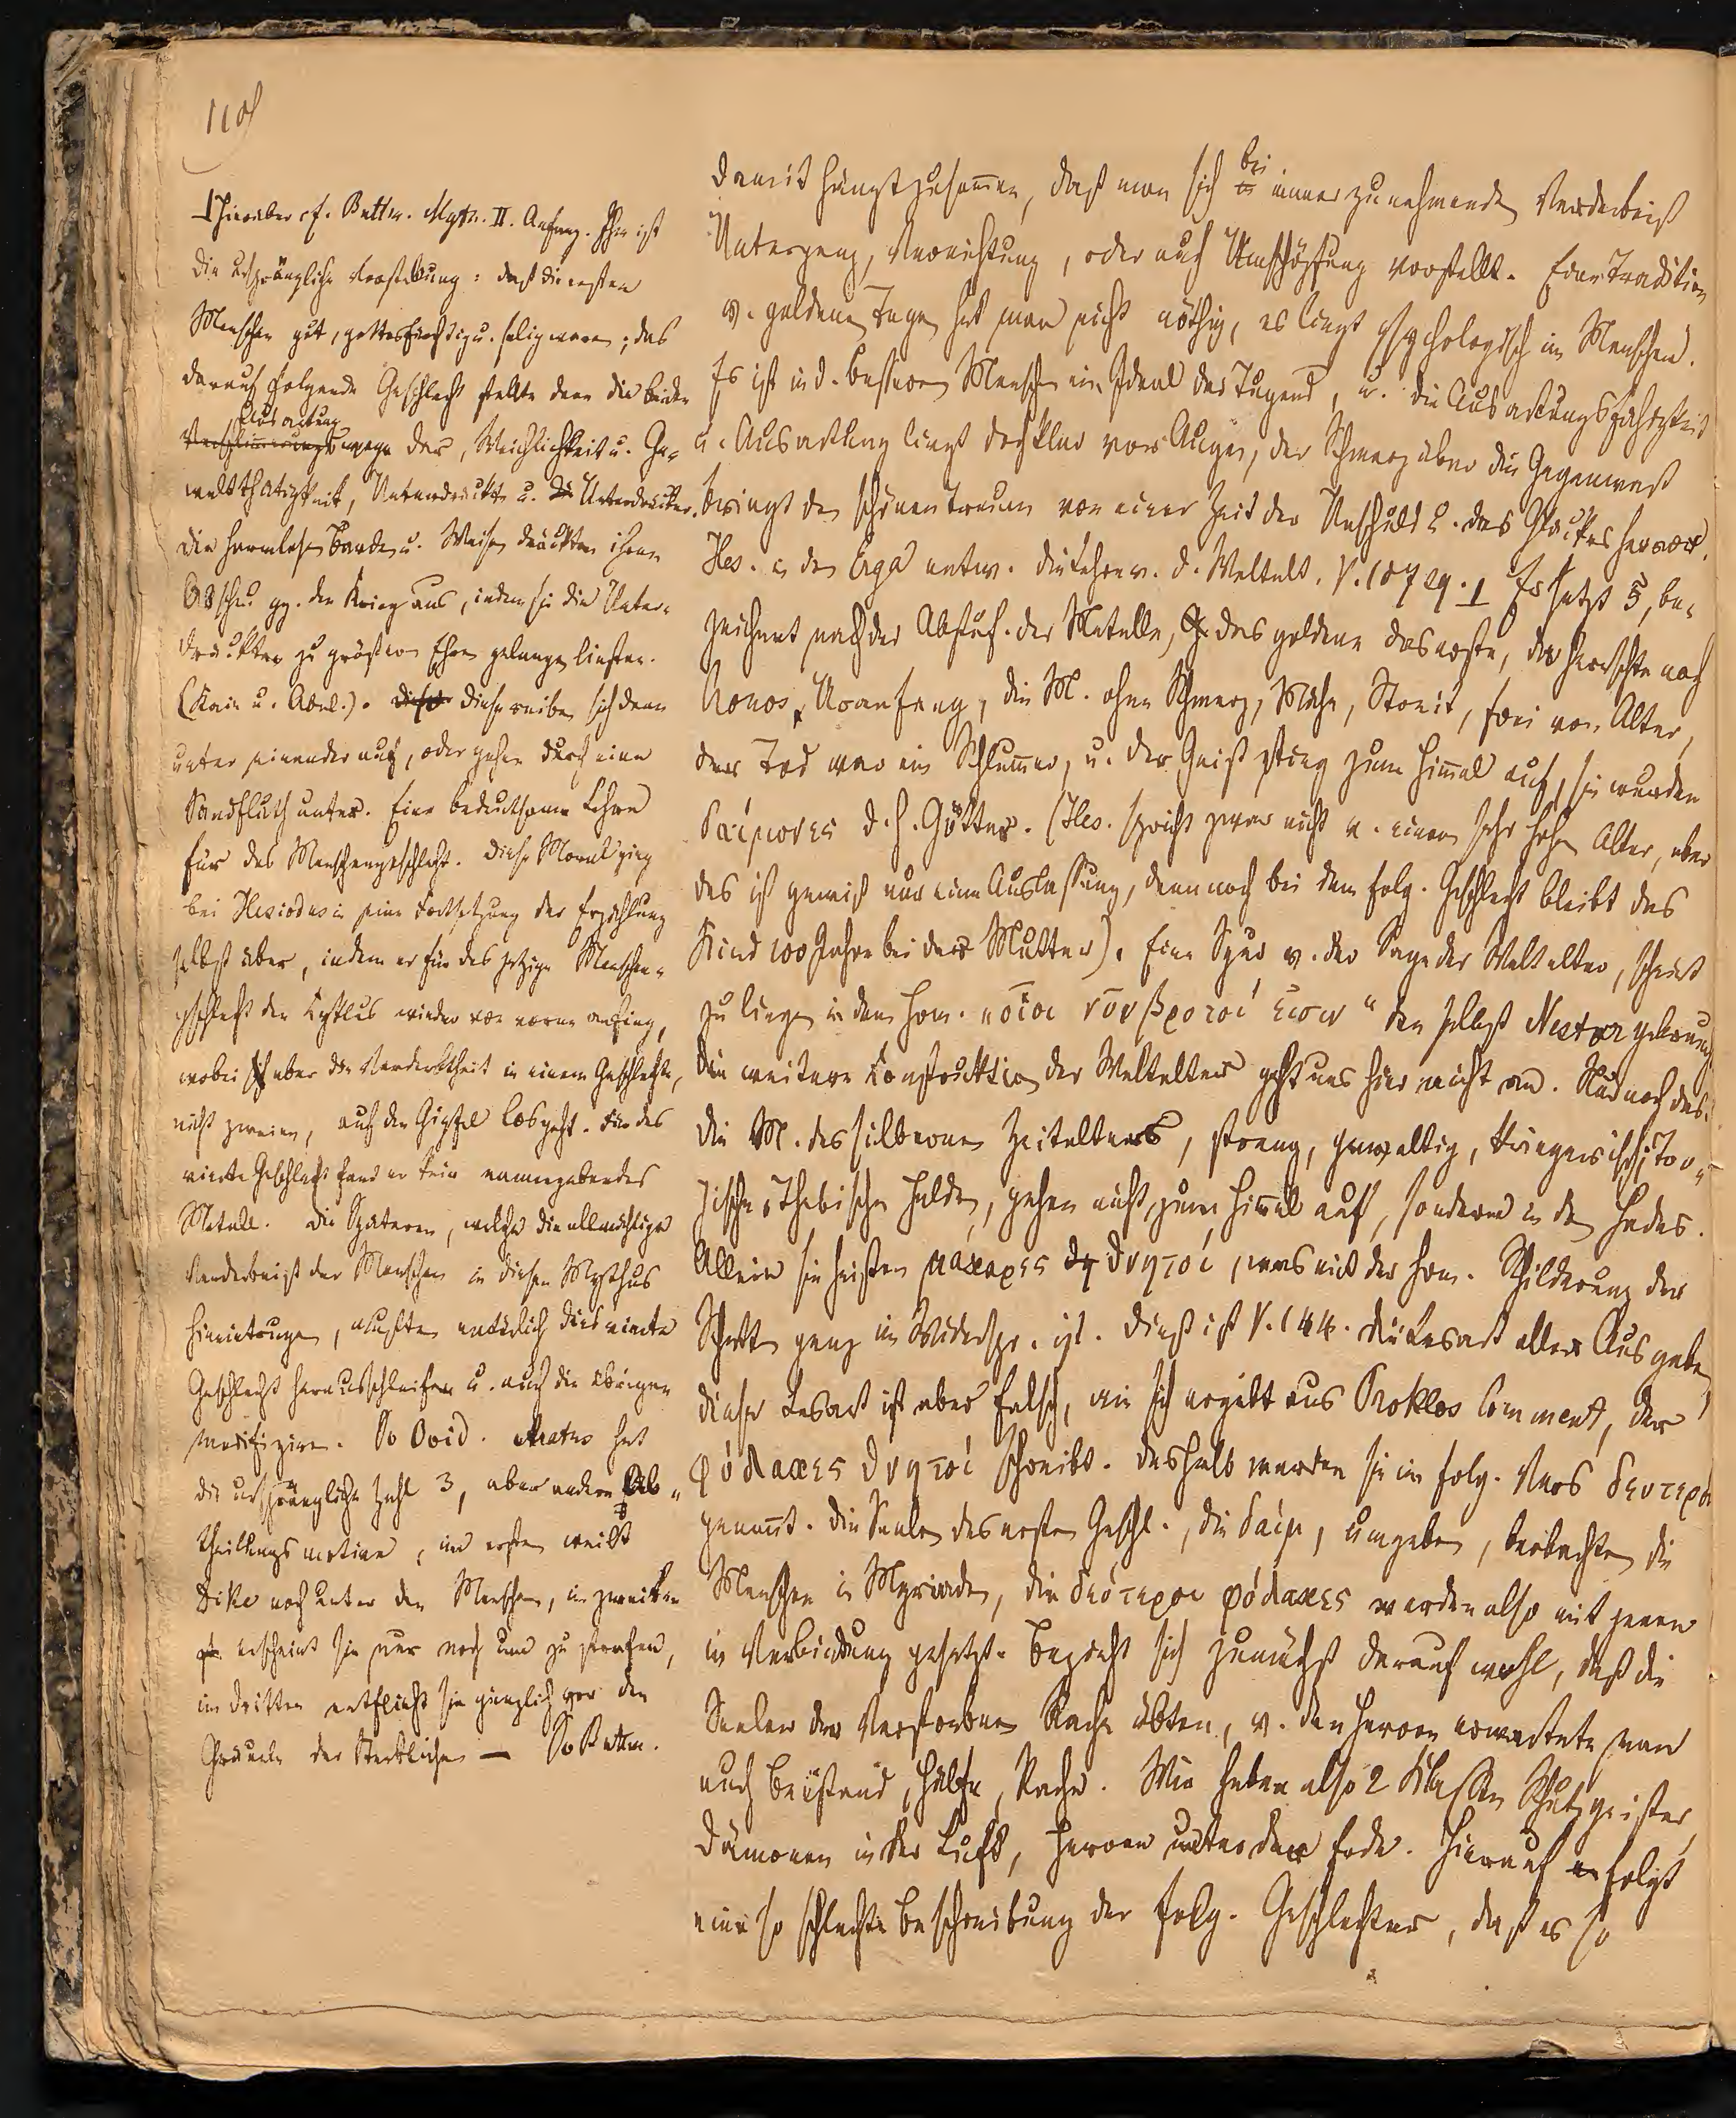 110
⊥ Hierüber cf. Buttm. Myth. II. Anfang. Ihm ist
die ursprüngliche Vorstellung: daß die ersten
Menschen gut, gottesfürchtig u. selig waren; das
darauf folgende Geschlecht stellte dann die beiden
Ausartung
Verschlimmerungswege dar, Weichlichkeit u. Ge-
waltthätigkeit, Unterdrückte u. die Unterdrücker.
Die harmlosen Barden u. Weisen drückten ihren
Abscheu gg. den Krieg aus, indem sie die Unter-
drückten zu größeren Ehren gelangen ließen.
(Kain u. Abel.). Diese reiben sich dann
unter einander auf, oder gehen durch eine
Sündfluth unter. Eine bedeutsame Lehre
für das Menschengeschlecht. Diese Moral ging
bei Hesiodus in eine Fortsetzung der Erzählung
selbst über, indem er für das jetzige Menschen-
geschlecht den Cyklus wieder von vorne anfing,
wobei aber die Verderbtheit in einem Geschlechte,
nicht zweien, auf den Gipfel losgeht. Für das
vierte Geschlecht fand er kein namengebendes
Metall. Die Späteren, welche die allmählige
Verderbniß der Menschen in diesen Mythus
hineintrugen, mußten natürlich dies vierte
Geschlecht herausschleifen u. auch die übrigen
modifiziren. So Ovid. Aratus hat
die ursprüngliche Zahl 3, aber andere Ab-
theilungsmotive, im ersten weilt
Dike noch unter den Menschen, im zweiten
erscheint sie nur noch um zu strafen,
im dritten entflieht sie gänzlich vor den
Gräueln der Sterblichen — So Buttm.
damit hängt zusammen, daß man sich bei immer zunehmender Verderbniß
Untergang, Vernichtung, oder auch Umschöpfung vorstellt. Eine Tradition
v. goldenen Tagen hat man nicht nöthig, es liegt psychologisch im Menschen.
Es ist in d. besseren Menschen ein Ideal der Tugend, u. die Ausartungsfähigkeit
u. Ausartung liegt doch klar vor Augen, der Schmerz über die Gegenwart
bringt den schönen Traum von einer Zeit der Unschuld u. des Glückes hervor.
Hes. in den Erga entw. die Lehre v. d. Weltalt. V. 107 sq. ⊥ Er setzt 5, be-
zeichnet nach der Abstuf. der Metalle, das goldene das erste, da herrschte noch
Kronos, Uranfang, die M. ohne Schmerz, Mühe, Streit, frei von Alter,
der Tod war ein Schlummer, u. der Geist stieg zum Himmel auf, sie wurden
δαίμονες d. h. Götter. (Hes. spricht zwar nicht v. einem sehr hohen Alter, aber
das ist gewiß nur eine Auslassung, denn noch bei dem folg. Geschlecht bleibt das
Kind 100 Jahre bei der Mutter). Eine Spur v. der Sage der Weltalter, scheint
zu liegen in dem Hom. „οἷοι νῦν βροτοί εἰσιν" den selbst Nestor gebraucht
Die weitere Construktion der Weltalter geht uns hier nicht an. Nur noch das:
die M. des silbernen Zeitalters, streng, gewaltig, kriegerisch,
thebische Helden, gehen nicht zum Himmel auf, sondern in den Hades.
Allein sie heißen μάκαρες θνητοί, was mit der Hom. Schilderung der
Schatten ganz im Widerspr. ist. Dieß ist V. 144. die Lesart aller Ausgaben,
diese Lesart ist aber falsch, wie sich ergibt aus Proklos Comment, der
φύλακες θνητοί schreibt. Deshalb werden sie im folg. Vers δεύτεροι
genannt. Die Seelen des ersten Geschl., die δαίμ, umgeben, beobachten die
Menschen in Myriaden, die δεύτεροι φύλακες werden also mit jenen
in Verbindung gesetzt. Bezieht sich zunächst darauf wohl, daß die
Seelen der Verstorbenen Rache übten, v. den Heroen erwartete man
auch Beistand, Hülfe, Rache. Wir haben also 2 Klassen Schutzgeister,
Dämonen in der Luft, Heroen unter der Erde. Hierauf erfolgt
eine so schlechte Beschreibung der folg. Geschlechter, daß es so